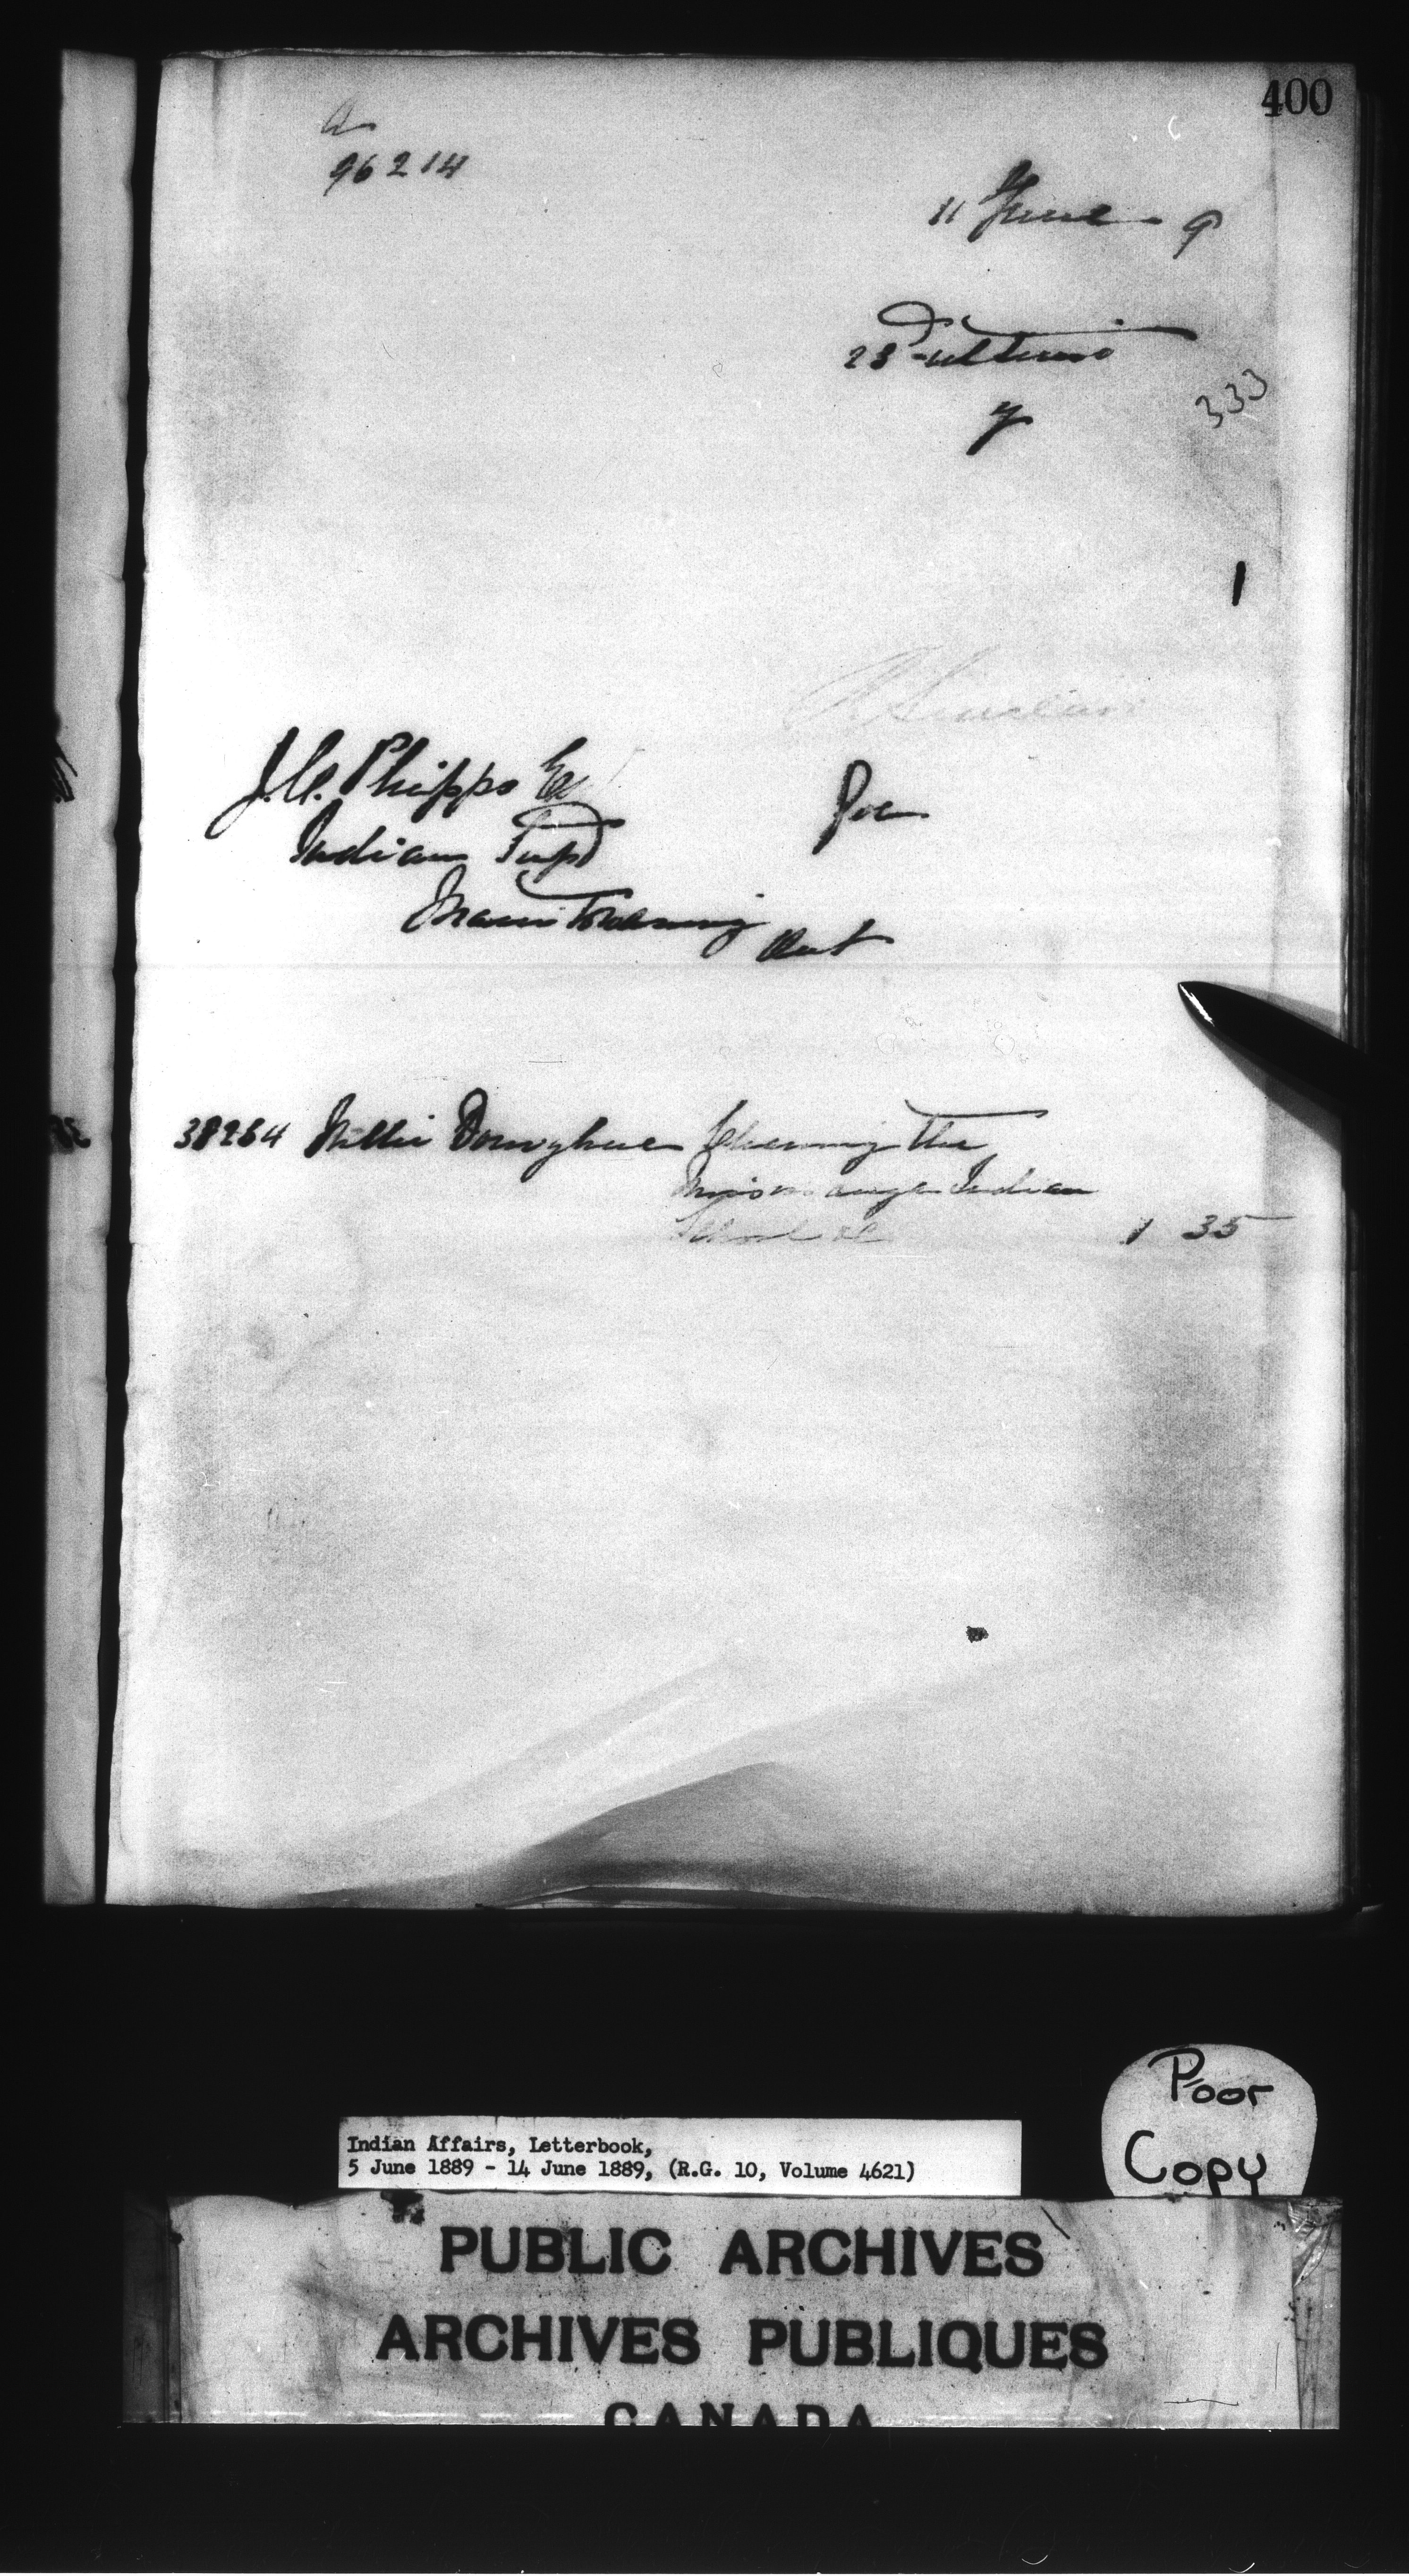 400
A
96214
11 June 9
28th ultimo
y
333
1
R Sinclair
J.C. Phipps Esq
Indian Supt
Manitowaning Ont
38264 Nellie Donoghue Cleaning the
Mississauga Indian
School &c 1 35
Poor
Copy
Indian Affairs, Letterbook,
5 June 1889 - 14 June 1889, (R.G. 10, Volume 4621)
PUBLIC ARCHIVES
ARCHIVES PUBLIQUES
CANADA